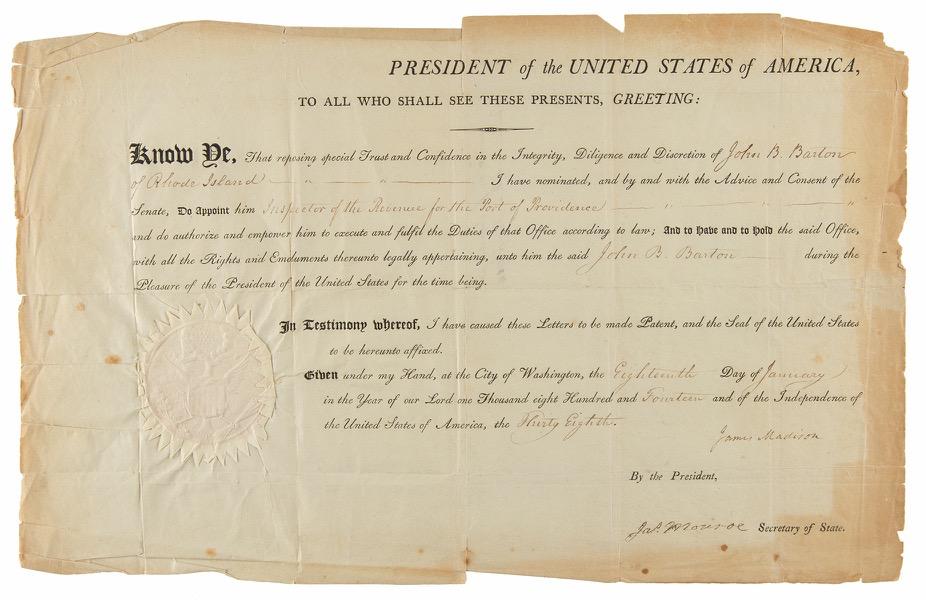 PRESIDENT of the UNITED STATES of AMERICA,
TO ALL WHO SHALL SEE THESE PRESENTS, GREETING:
Know Ye, That reposing special Trust and Confidence in the Integrity, Diligence and Discretion of John B. Barton
of Rhode Island I have nominated, and by and with the Advice and Consent of the
Senate, Do Appoint him Inspector of the Revenue for the Port of Providence
and do authorize and empower him to execute and fulfil the Duties of that Office according to law; And to Have and to Hold the said Office,
with all the Rights and Emoluments thereunto legally appertaining, unto him the said John B. Barton during the
Pleasure of the President of the United States for the time being.
In Testimony whereof, I have caused these Letters to be made Patent, and the Seal of the United States
to be hereunto affixed.
Given under my Hand, at the City of Washington, the Eighteenth Day of January
in the Year of our Lord one Thousand eight Hundred and Fourteen and of the Independence of
the United States of America, the Thirty Eighth.
James Madison
By the President,
Jas. Monroe Secretary of State.